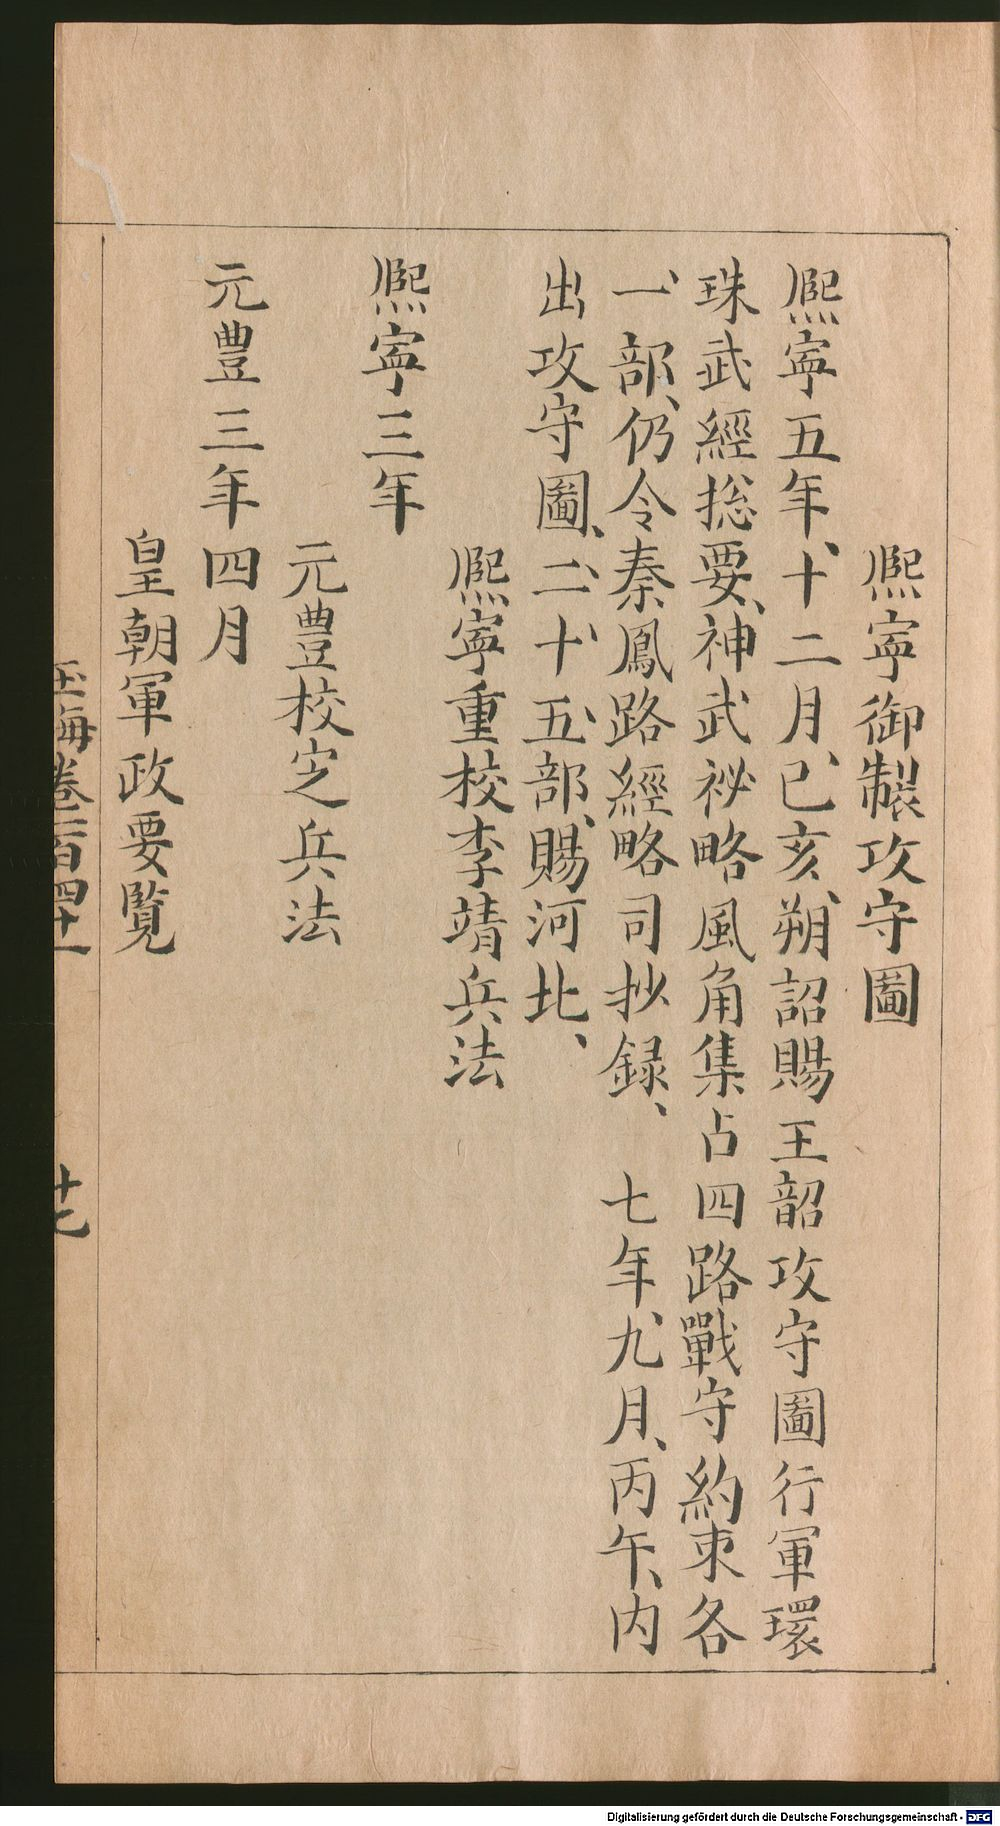 熈寧御製攻守圖
熈寧五年、十二月、已亥、朔詔賜王韶攻守圖行軍環
珠武經捴要、神武祕略風角集占四路戰守約束各
一、部、仍令秦鳳路經略司抄録、七年、九月、丙午、内
出攻守圖、二、十、五、部、賜河北、
熈寧重校李靖兵法
熈寧三年
元豊校定兵法
元豊三年四月
皇朝軍政要覧
玉海卷一百四十一
十七
Digitalisierung gefördert durch die Deutsche Forschungsgemeinschaft - DFG